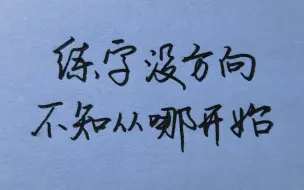 练字没方向
不知从哪开始